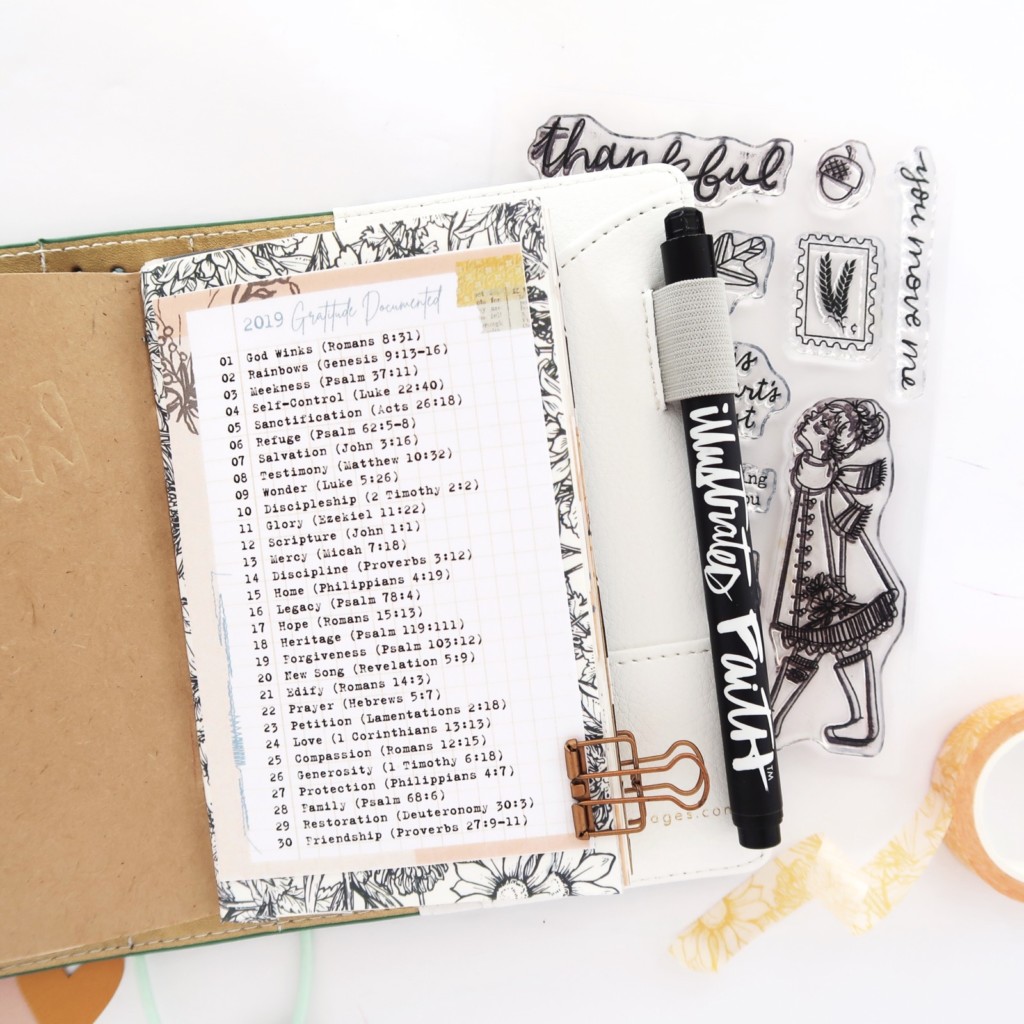 2019 Gratitude Documented
01 God Winks (Romans 8:31)
02 Rainbows (Genesis 9:13-16)
03 Meekness (Psalm 37:11)
04 Self-Control (Luke 22:40)
05 Sanctification (Acts 26:18)
06 Refuge (Psalm 62:5-8)
07 Salvation (John 3:16)
08 Testimony (Matthew 10:32)
09 Wonder (Luke 5:26)
10 Discipleship (2 Timothy 2:2)
11 Glory (Ezekiel 11:22)
12 Scripture (John 1:1)
13 Mercy (Micah 7:18)
14 Discipline (Proverbs 3:12)
15 Home (Philippians 4:19)
16 Legacy (Psalm 78:4)
17 Hope (Romans 15:13)
18 Heritage (Psalm 119:111)
19 Forgiveness (Psalm 103:12)
20 New Song (Revelation 5:9)
21 Edify (Romans 14:3)
22 Prayer (Hebrews 5:7)
23 Petition (Lamentations 2:18)
24 Love (1 Corinthians 13:13)
25 Compassion (Romans 12:15)
26 Generosity (1 Timothy 6:18)
27 Protection (Philippians 4:7)
28 Family (Psalm 68:6)
29 Restoration (Deuteronomy 30:3)
30 Friendship (Proverbs 27:9-11)
thankful
you move me
illustrated Faith™